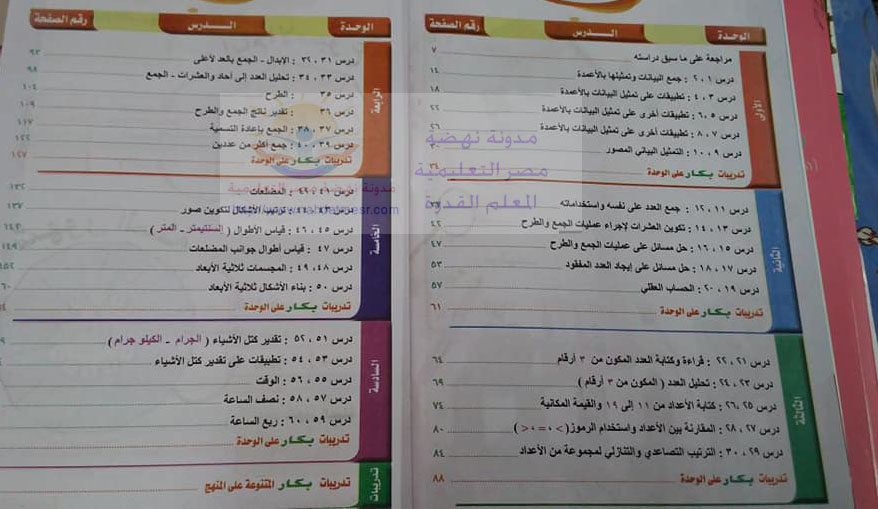 الوحدة الــدرس رقم الصفحة
الأولى
مراجعة على ما سبق دراسته ٧
درس ١ ، ٢ : جمع البيانات وتمثيلها بالأعمدة ١٤
درس ٣ ، ٤ : تطبيقات على تمثيل البيانات بالأعمدة ١٨
درس ٥ ، ٦ : تطبيقات أخرى على تمثيل البيانات بالأعمدة ٢٢
درس ٧ ، ٨ : تطبيقات أخرى على تمثيل البيانات بالأعمدة ٢٦
درس ٩ ، ١٠ : التمثيل البياني المصور ٣٠
تدريبات بكار على الوحدة ٣٤
الثانية
درس ١١ ، ١٢ : جمع العدد على نفسه واستخداماته
درس ١٣ ، ١٤ : تكوين العشرات لإجراء عمليات الجمع والطرح ٤٢
درس ١٥ ، ١٦ : حل مسائل على عمليات الجمع والطرح ٤٧
درس ١٧ ، ١٨ : حل مسائل على إيجاد العدد المفقود ٥٣
درس ١٩ ، ٢٠ : الحساب العقلي ٥٧
تدريبات بكار على الوحدة ٦١
الثالثة
درس ٢١ ، ٢٢ : قراءة وكتابة العدد المكون من ٣ أرقام ٦٤
درس ٢٣ ، ٢٤ : تحليل العدد ( المكون من ٣ أرقام ) ٦٩
درس ٢٥ ، ٢٦ : كتابة الأعداد من ١١ إلى ١٩ والقيمة المكانية ٧٤
درس ٢٧ ، ٢٨ : المقارنة بين الأعداد واستخدام الرموز ( > ، = ، < ) ٨٠
درس ٢٩ ، ٣٠ : الترتيب التصاعدي والتنازلي لمجموعة من الأعداد ٨٤
تدريبات بكار على الوحدة ٨٨
الوحدة الــدرس رقم الصفحة
الرابعة
درس ٣١ ، ٣٢ : الإبدال - الجمع بالعد لأعلى ٩٣
درس ٣٣ ، ٣٤ : تحليل العدد إلى آحاد والعشرات - الجمع ٩٨
درس ٣٥ : الطرح ١٠٤
٣٦ : تقدير ناتج الجمع والطرح ١٠٩
درس ٣٧ ، ٣٨ : الجمع بإعادة التسمية ١١٧
درس ٣٩ ، ٤٠ : جمع أكثر من عددين ١٢٢
تدريبات بكار على الوحدة ١٢٧
الخامسة
درس ٤١ ، ٤٢ : المضلعات ١٣٢
ترتيب الأشكال لتكوين صور ١٣٧
درس ٤٥ ، ٤٦ : قياس الأطوال ( السنتيمتر - المتر ) ١٤٣
درس ٤٧ : قياس أطوال جوانب المضلعات ١٤٩
درس ٤٨ ، ٤٩ : المجسمات ثلاثية الأبعاد ١٥٢
درس ٥٠ : بناء الأشكال ثلاثية الأبعاد
تدريبات بكار على الوحدة
السادسة
درس ٥١ ، ٥٢ : تقدير كتل الأشياء ( الجرام - الكيلو جرام )
درس ٥٣ ، ٥٤ : تطبيقات على تقدير كتل الأشياء
درس ٥٥ ، ٥٦ : الوقت
درس ٥٧ ، ٥٨ : نصف الساعة
درس ٥٩ ، ٦٠ : ربع الساعة
تدريبات بكار على الوحدة
تدريبات
تدريبات بكار المتنوعة على المنهج
مدونة نهضة
مصر التعليمية
المعلم القدوة